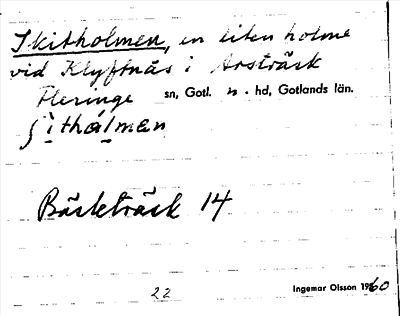 Skitholmen, en liten holme
vid Klyftnäs i Arsträsk
Fleringe sn, Gotl. n. hd, Gotlands län.
Bästeträsk 14
22 Ingemar Olsson 1960